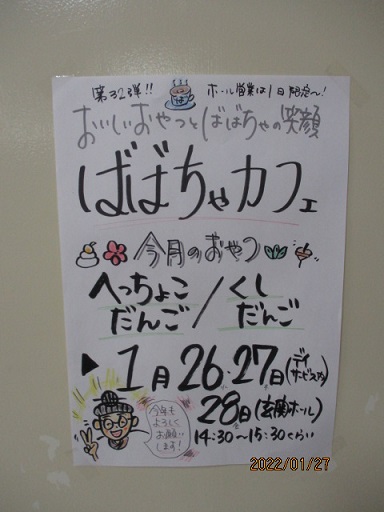 第32弾!! ホール営業は1日限定〜!
ば
おいしいおやつとばばちゃの笑顔
ばばちゃカフェ
今月のおやつ
へっちょこだんご / くしだんご
▶ 1月26・27日(デイサービス内)
28日(玄関ホール)
14:30〜15:30くらい
今年も
よろしく
お願い
します!
2022/01/27